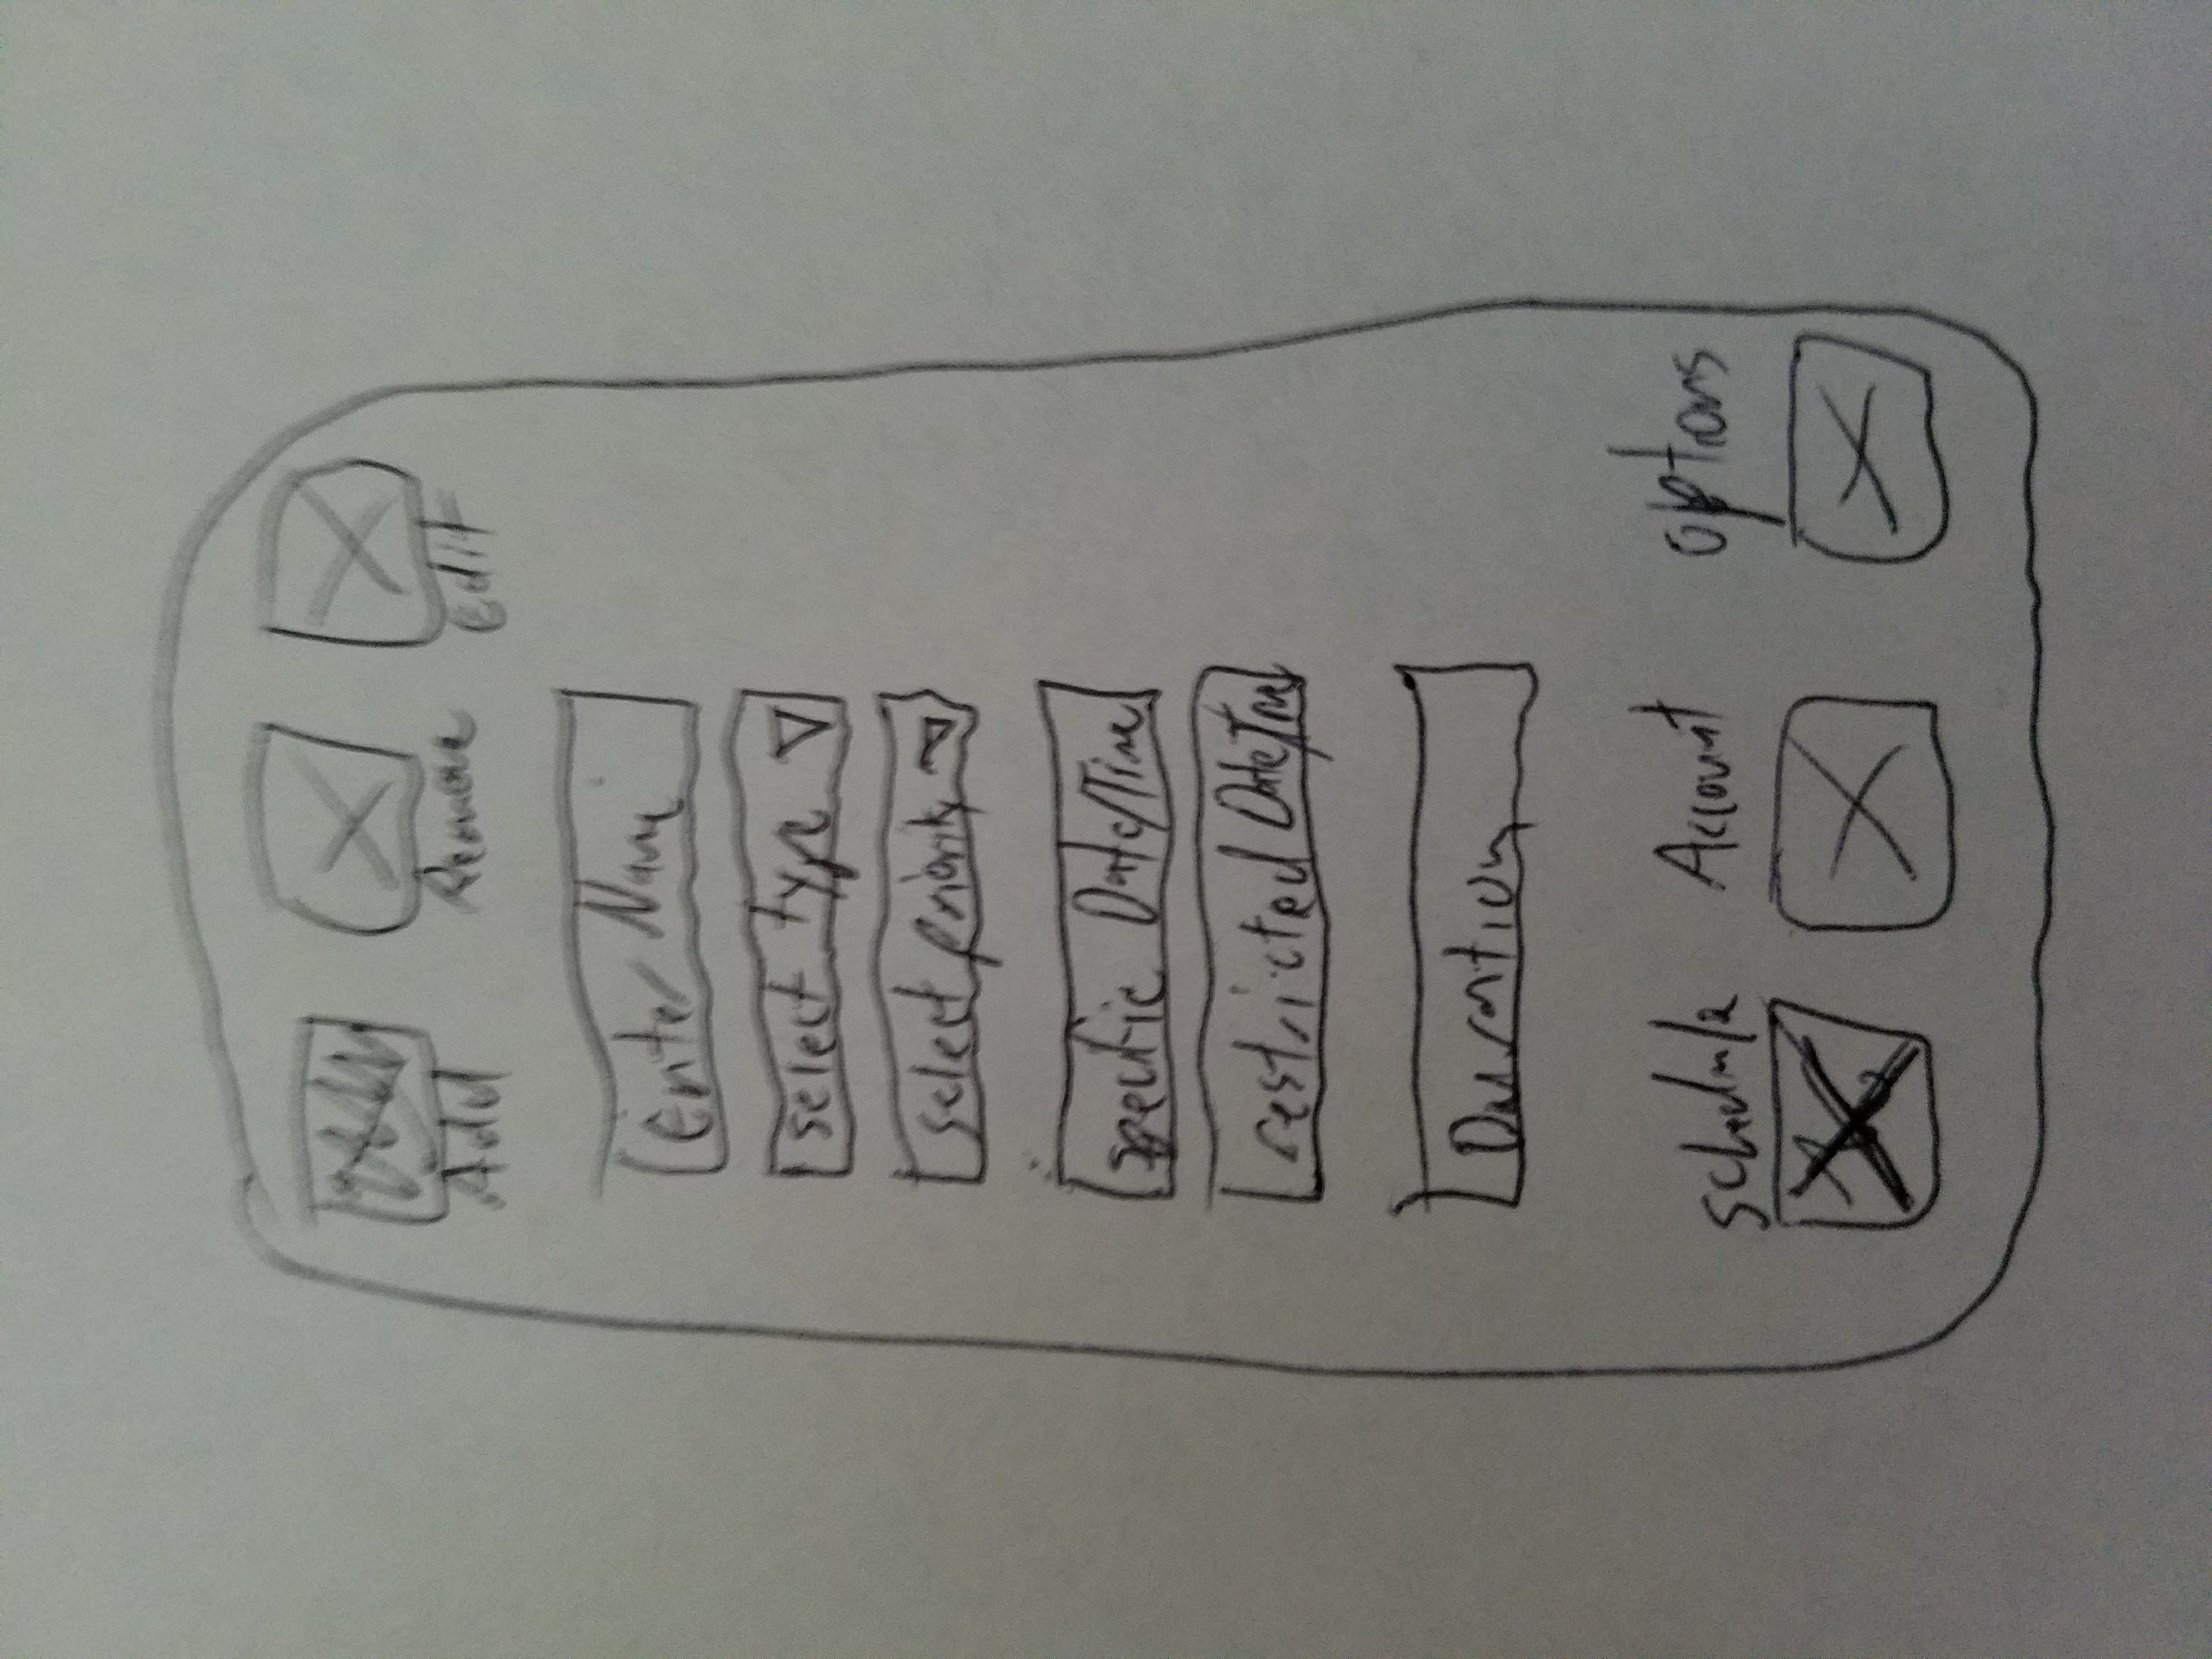 Add Remove Edit
Enter Name
select type
select priority
specific Date/Time
restricted Date/Time
Duration
schedule Account options